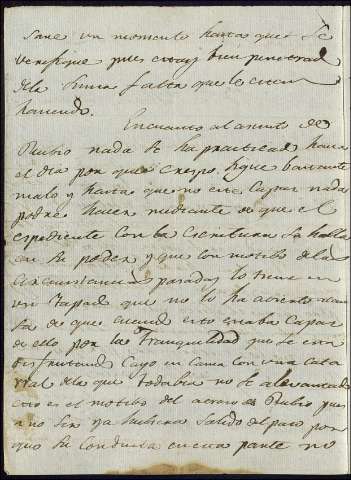 sare un momento hasta que se
verefique pues estoy bien penetrad
dela suma falta que le estan
haciendo.
Encuanto al asunto de
Rubio nada se ha practicado hasta
el dia por que Crespo sigue bastante
malo y hasta que no este Capas nada
podre hacer mediante a que el
espediente con la escritura se halla
en su poder y que con motibo de las
circunstancias pasadas lo tiene en
un tapad que no lo ha avierto
ta de que cuando esto estaba Capas
de ello por la tranquilidad que se esta
disfrutando Cayo en Cama con una cata
rral dela que todabia no se a levantado
este es el motibo del atraso de Rubio pues
a no ser ya hubiera salido del paso por
que su conducta en esta parte no